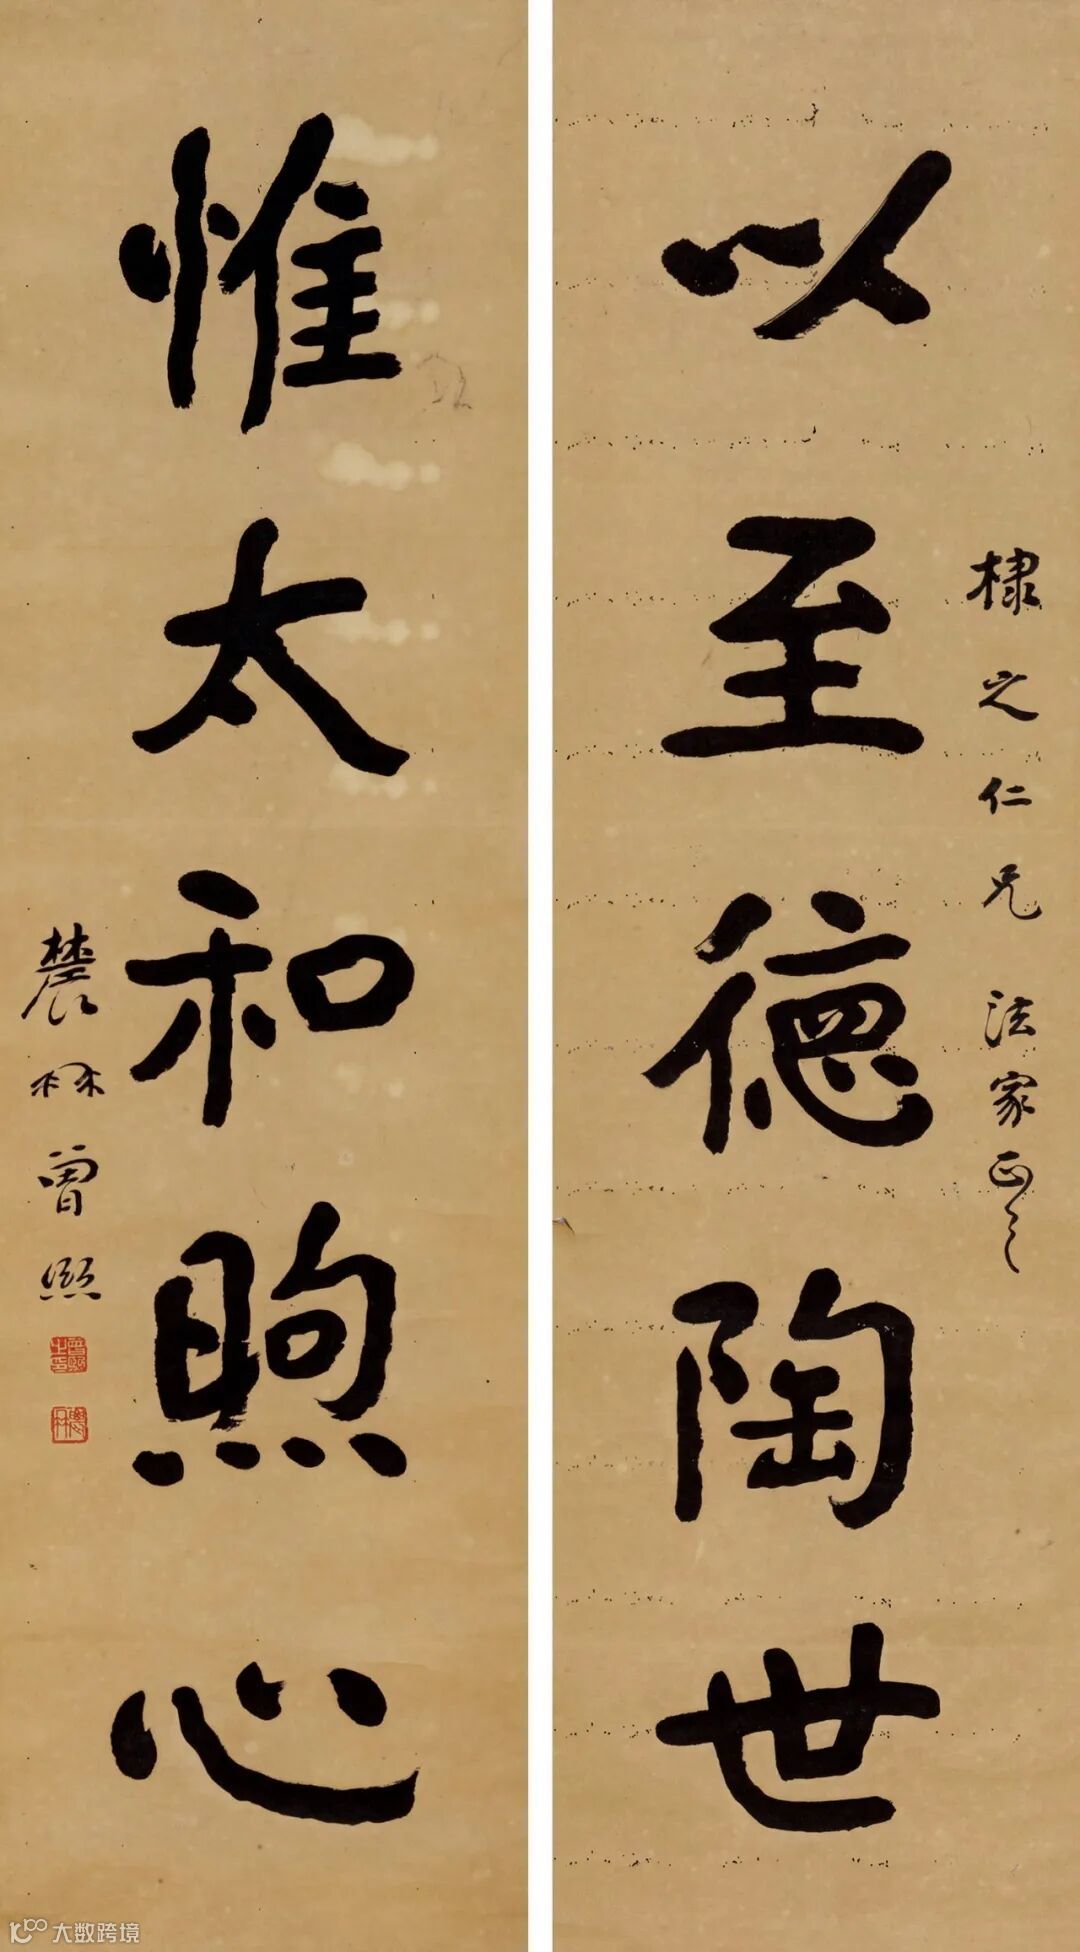 以至德陶世
棣之仁兄 法家正之
惟太和煦心
農髯曾熙
曾熙之印
大数跨境